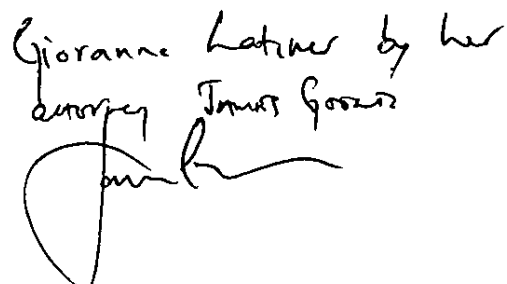 Giovanne Latimer by her
attorney James